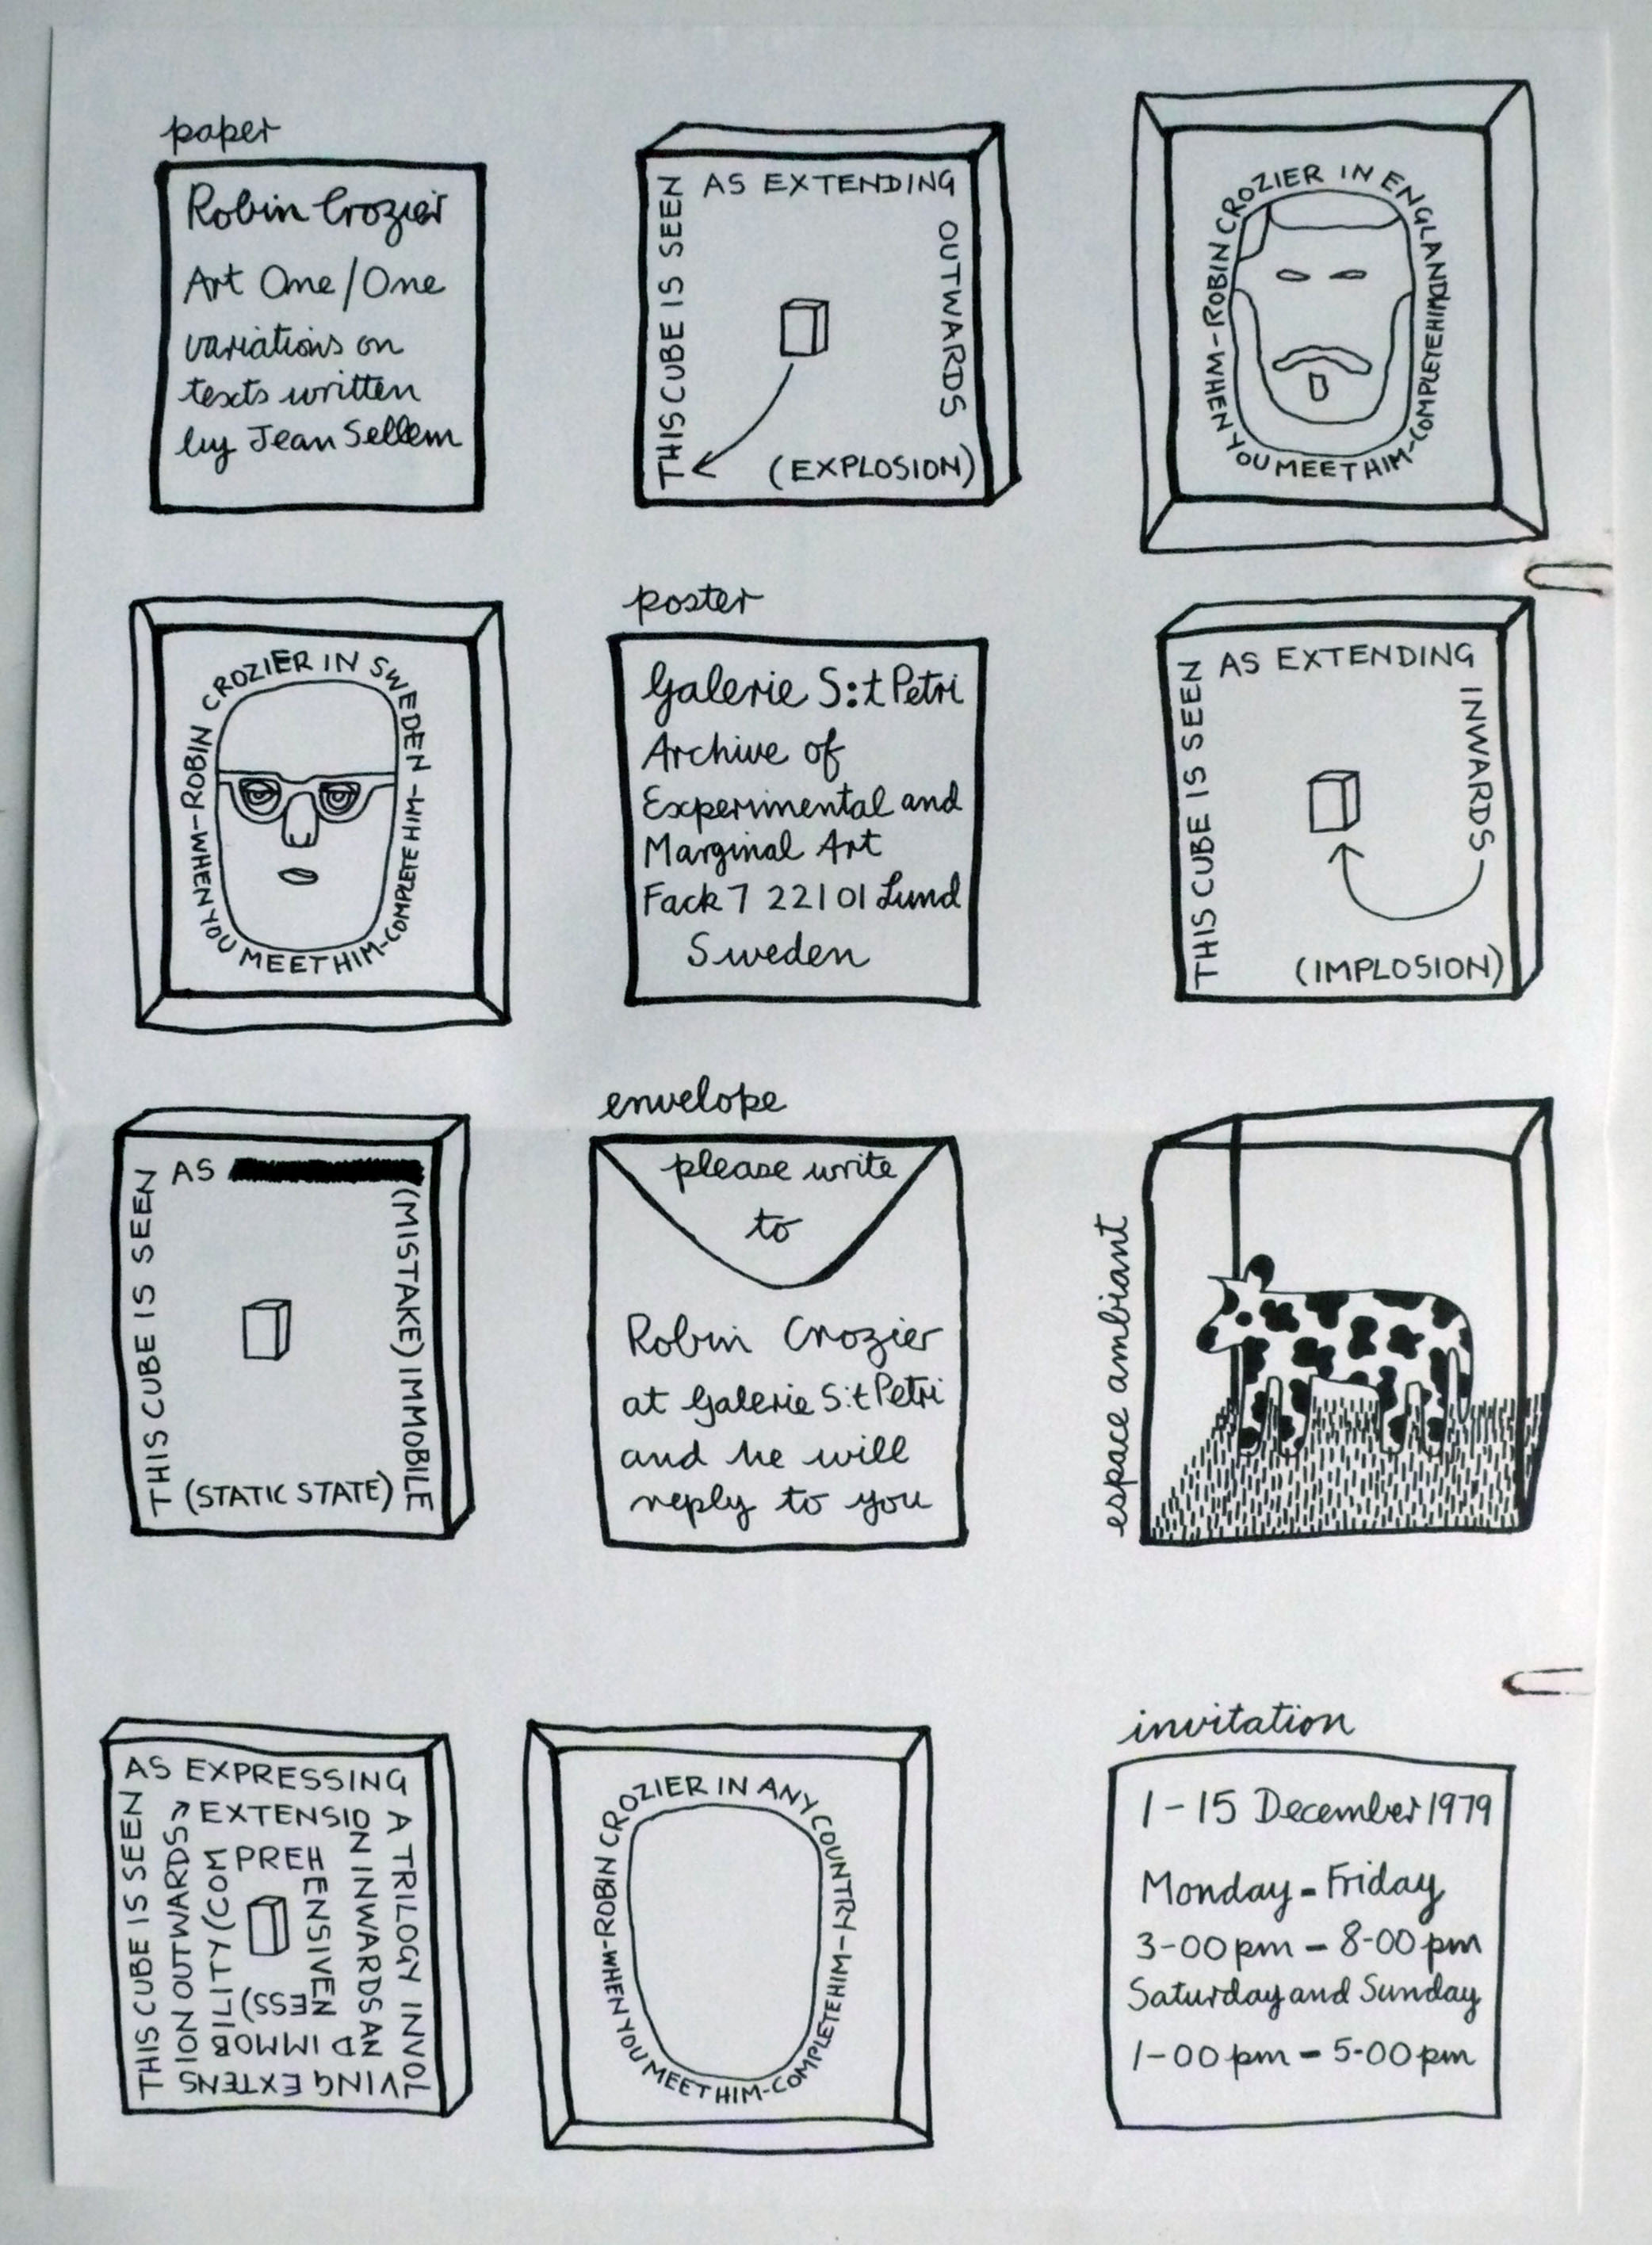 paper
Robin Crozier
Art One/One
variations on
texts written
by Jean Sellem
THIS CUBE IS SEEN
AS EXTENDING
OUTWARDS
(EXPLOSION)
ROBIN CROZIER IN ENGLAND-COMPLETE HIM-WHEN YOU MEET HIM-
ROBIN CROZIER IN SWEDEN-COMPLETE HIM-WHEN YOU MEET HIM-
poster
Galerie S:t Petri
Archive of
Experimental and
Marginal Art
Fack 7 22101 Lund
Sweden
THIS CUBE IS SEEN
AS EXTENDING
INWARDS
(IMPLOSION)
THIS CUBE IS SEEN
AS
(MISTAKE) IMMOBILE
(STATIC STATE)
envelope
please write
to
Robin Crozier
at Galerie S:t Petri
and he will
reply to you
espace ambiant
THIS CUBE IS SEEN
AS EXPRESSING
A TRILOGY INVOL
VING EXTENS
ION OUTWARDS
EXTENSIO
N INWARDS AN
D IMMOB
ILITY (COM
PREH
ENSIVEN
ESS)
ROBIN CROZIER IN ANY COUNTRY-COMPLETE HIM-WHEN YOU MEET HIM-
invitation
1-15 December 1979
Monday-Friday
3-00pm-8-00pm
Saturday and Sunday
1-00pm-5-00pm